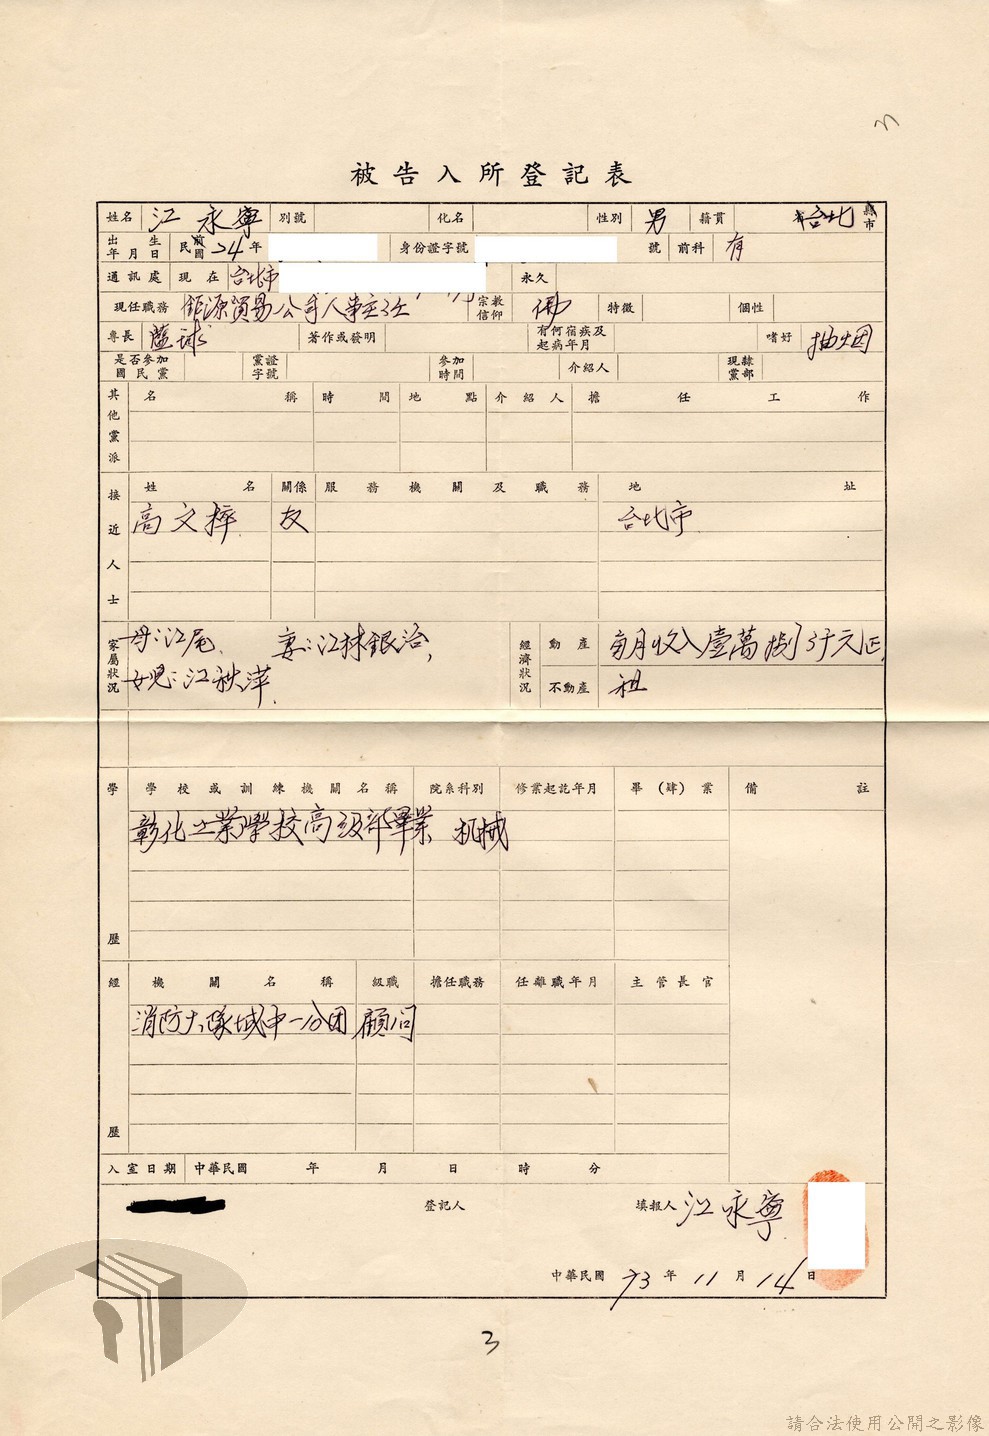 被告入所登記表
姓名 江永寧 別號 化名 性別 男 籍貫 省台北 縣市
出生年月日 民前國 24年 身份證字號 號 前科 有
通訊處 現在 台北市 永久
現任職務 鉅源貿易公司人事主任 宗教信仰 佛 特徵 個性
專長 籃球 著作或發明 有何宿疾及起病年月 嗜好 抽烟
是否參加國民黨 黨證字號 參加時間 介紹人 現隸黨部
其他黨派 名稱 時間 地點 介紹人 擔任工作
接近人士 姓名 關係 服務機關及職務 地址
高文梓 友 台北市
家屬狀況 母:江尾、 妻:江林銀治, 經濟狀況 動產 每月收入壹萬捌仟元正,
女兒:江秋萍. 不動產 租
學歷 學校或訓練機關名稱 院系科別 修業起訖年月 畢(肄)業 備註
彰化工業學校高級部畢業 机械
經歷 機關名稱 級職 擔任職務 任離職年月 主管長官
消防大隊城中一分团 顧问
入室日期 中華民國 年 月 日 時 分
登記人 填報人 江永寧
中華民國 73年 11月 14日
3
請合法使用公開之影像